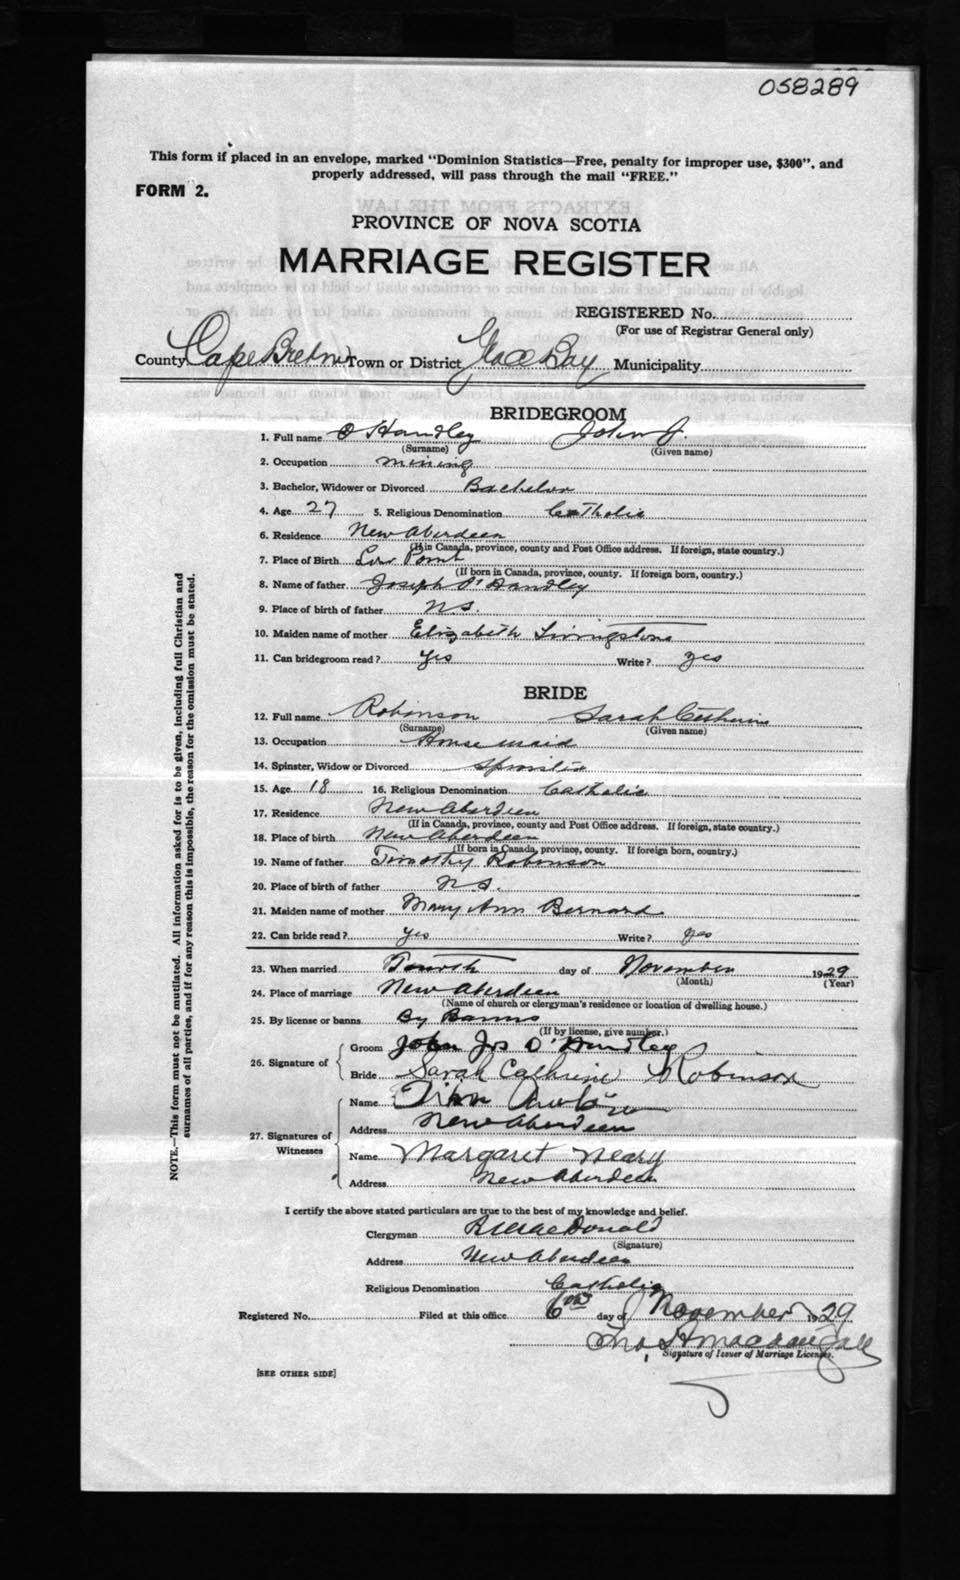 058289
This form if placed in an envelope, marked "Dominion Statistics—Free, penalty for improper use, $300", and
properly addressed, will pass through the mail "FREE."
FORM 2.
PROVINCE OF NOVA SCOTIA
MARRIAGE REGISTER
REGISTERED No.
(For use of Registrar General only)
County Cape Breton Town or District Glace Bay Municipality
BRIDEGROOM
1. Full name O'Handley John J.
(Surname) (Given name)
2. Occupation mining
3. Bachelor, Widower or Divorced Bachelor
4. Age 27 5. Religious Denomination Catholic
6. Residence New Aberdeen
(If in Canada, province, county and Post Office address. If foreign, state country.)
7. Place of Birth Low Point
(If born in Canada, province, county. If foreign born, country.)
8. Name of father Joseph O'Handley
9. Place of birth of father N.S.
10. Maiden name of mother Elizabeth Livingstone
11. Can bridegroom read? yes Write? yes
BRIDE
12. Full name Robinson Sarah Catherine
(Surname) (Given name)
13. Occupation House maid
14. Spinster, Widow or Divorced Spinster
15. Age 18 16. Religious Denomination Catholic
17. Residence New Aberdeen
(If in Canada, province, county and Post Office address. If foreign, state country.)
18. Place of birth New Aberdeen
(If born in Canada, province, county. If foreign born, country.)
19. Name of father Timothy Robinson
20. Place of birth of father N.S.
21. Maiden name of mother Mary Ann Bernard
22. Can bride read? yes Write? yes
23. When married Fourth day of November 1929
(Month) (Year)
24. Place of marriage New Aberdeen
(Name of church or clergyman's residence or location of dwelling house.)
25. By license or banns By Banns
(If by license, give number.)
26. Signature of Groom John Jos O'Handley
Bride Sarah Cathrine Robinson
27. Signatures of Witnesses
Name
Address New Aberdeen
Name Margaret Neary
Address New Aberdeen
I certify the above stated particulars are true to the best of my knowledge and belief.
Clergyman MacDonald
(Signature)
Address New Aberdeen
Religious Denomination Catholic
Registered No. Filed at this office 6th day of November 1929
Thos H Macdougall
Signature of Issuer of Marriage Licenses.
[SEE OTHER SIDE]
NOTE.—This form must not be mutilated. All information asked for is to be given, including full Christian and
surnames of all parties, and if for any reason this is impossible, the reason for the omission must be stated.